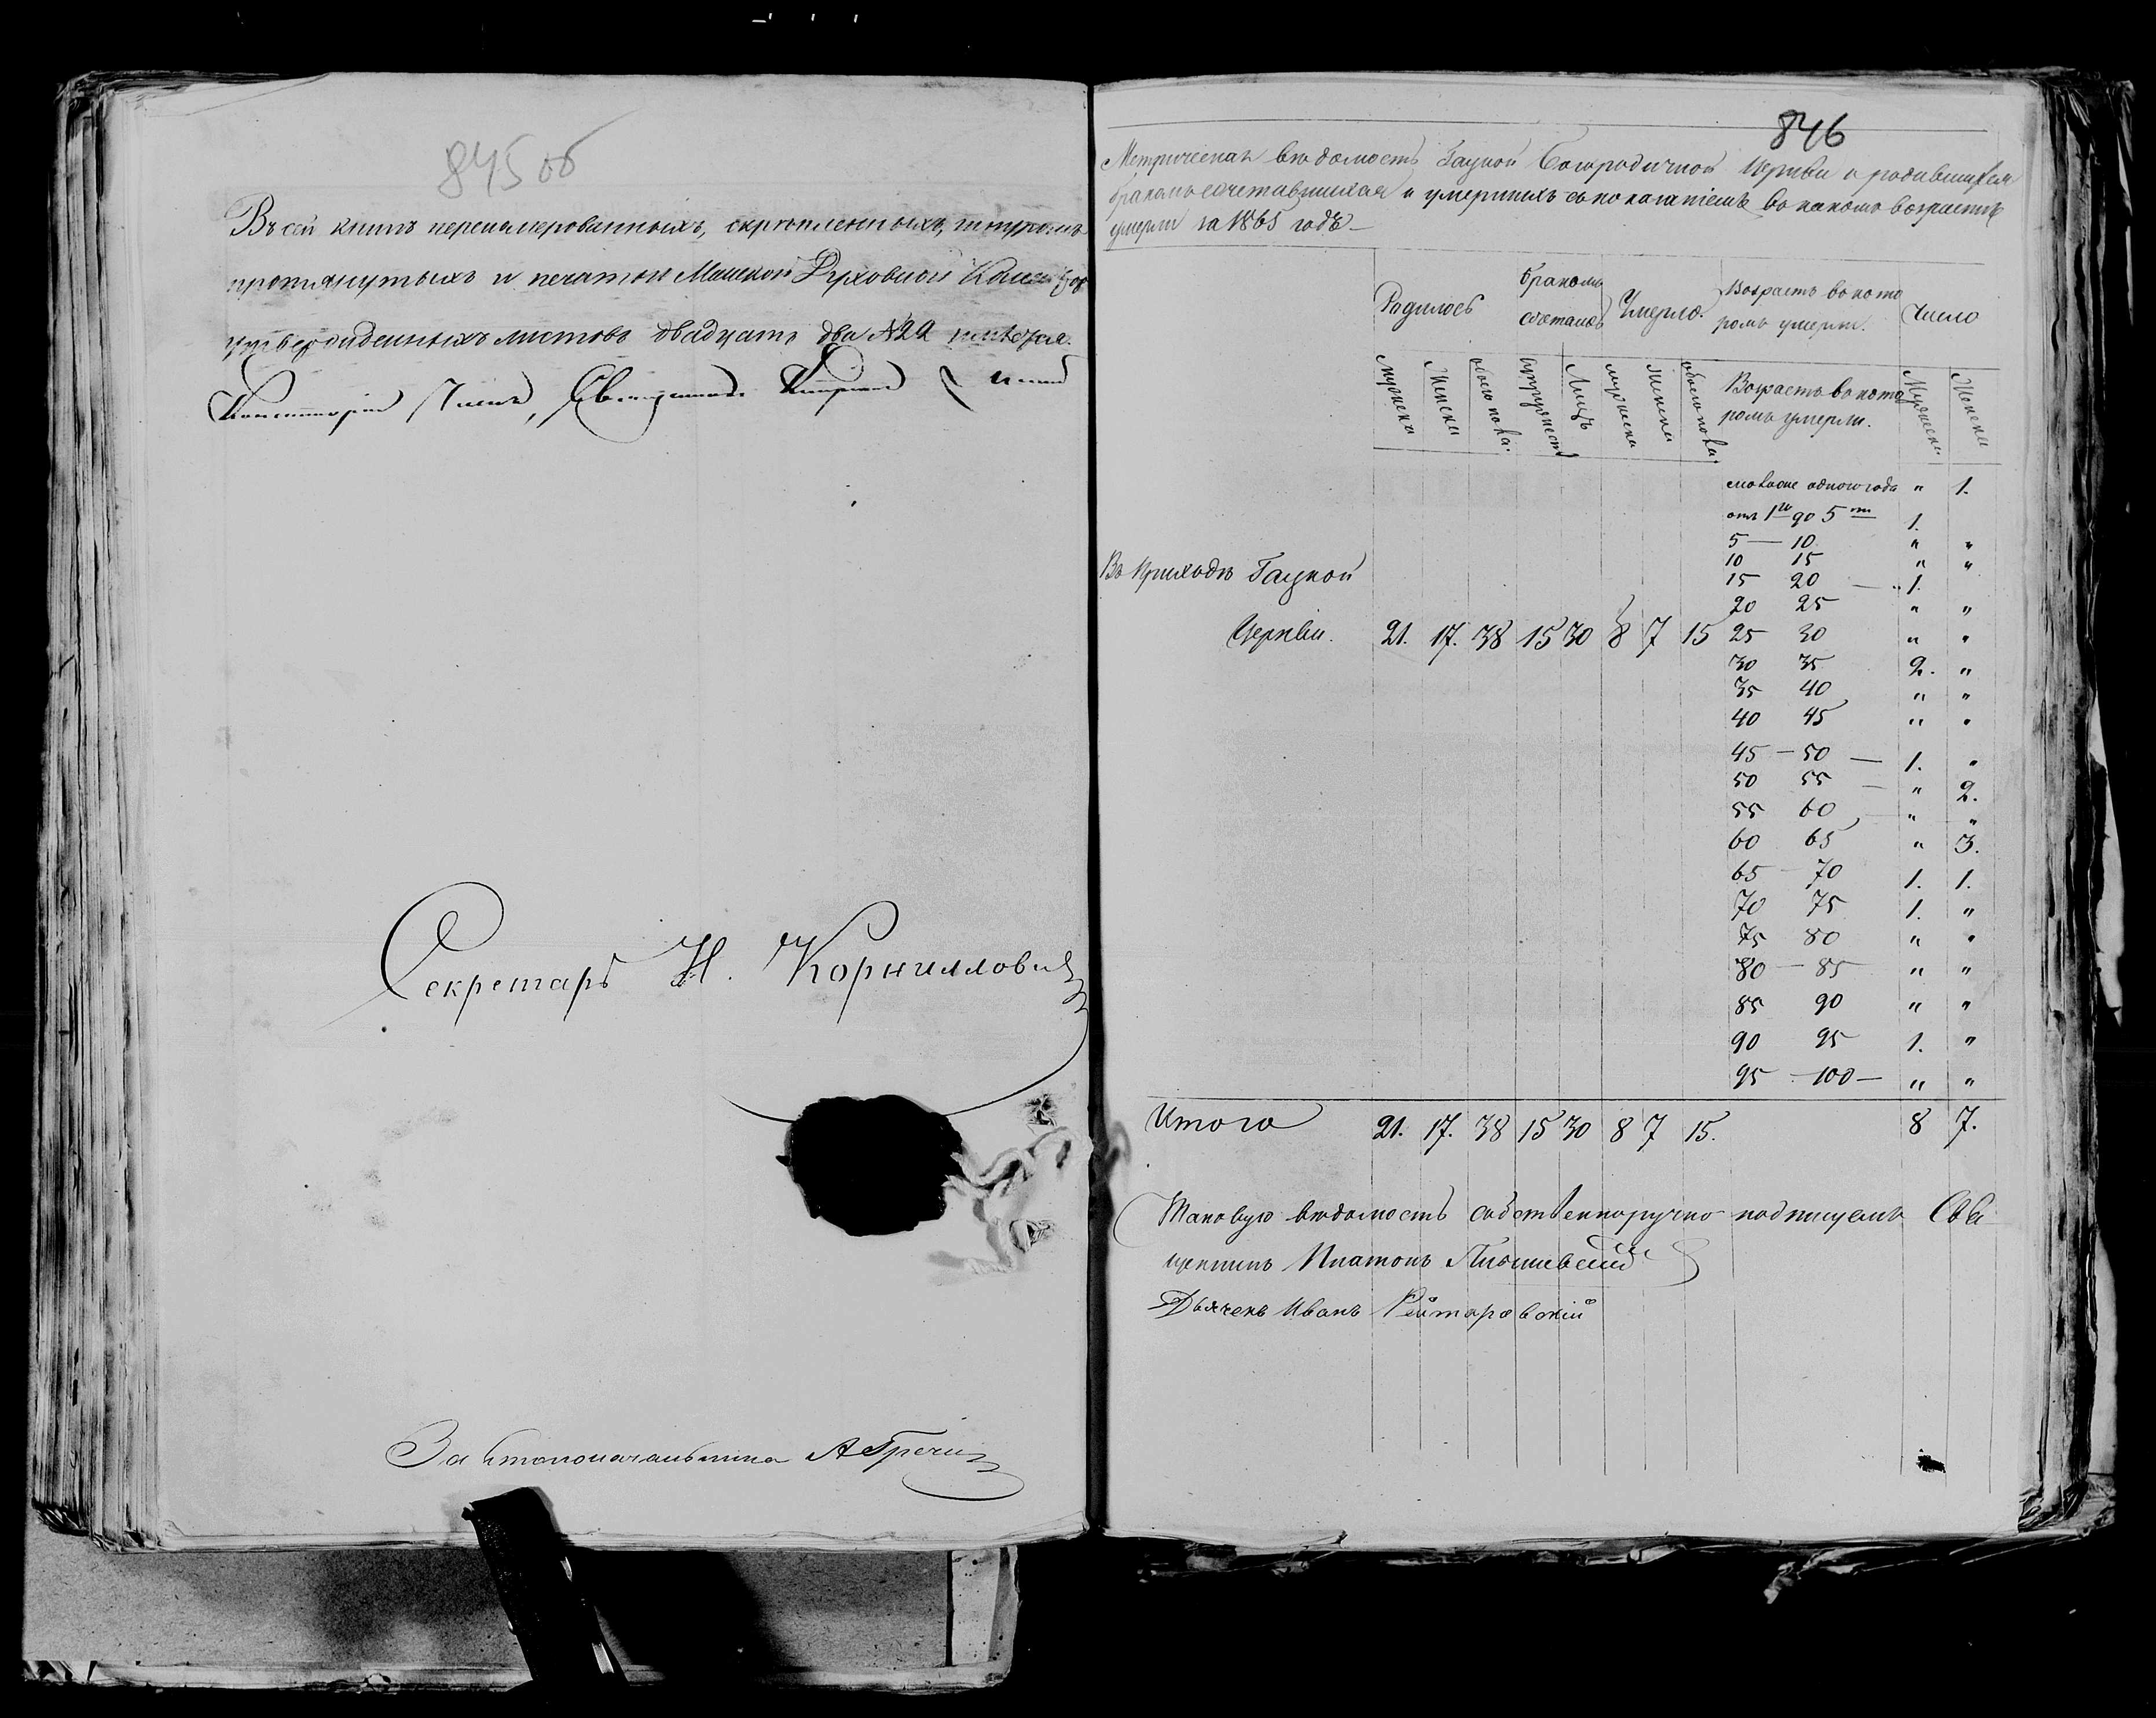 845об
Въ сей книгѣ перенумерованныхъ, скрѣпленныхъ, шнуромъ
протянутыхъ и печатью Минской Духовной
утвержденныхъ листовъ двадцать два №22
Консисторіи Членъ, Священникъ
Секретарь Н. Корниллови
За Столоначальника
846
Метрическая вѣдомость Гацкой Богородичной Церкви о родившихся
бракомъ сочетавшихся и умершихъ съ показаніемъ въ какомъ возрастѣ
умерли за 1865 годъ
Родилось бракомъ сочеталось Умерло. Возрастъ въ кото ромъ умерли. Число
Мужска Женска обоего пола. супружеств Лицъ мужска женска обоего пола. Возрастъ въ кото ромъ умерли. Мужска Женска
моложе одного года " 1.
отъ 1го до 5ти 1. "
5 — 10 " "
10 15 " "
Въ Приходѣ Гацкой
15 20 — 1. "
20 25 " "
Церкви. 21. 17. 38 15 30 8 7 15 25 30 " "
30 35 2. "
35 40 " "
40 45 " "
45 — 50 — 1. "
50 55 — " 2.
55 60 " "
60 65 " 3.
65 70 1. 1.
70 75 1. "
75 80 " "
80 — 85 " "
85 90 " "
90 95 1. "
95 — 100 — " "
Итого 21. 17. 38 15 30 8 7 15. 8 7.
Таковую вѣдомость собственноручно подписуемъ Свя
щенникъ Платонъ
Дьячекъ Иванъ Рейтаровскій